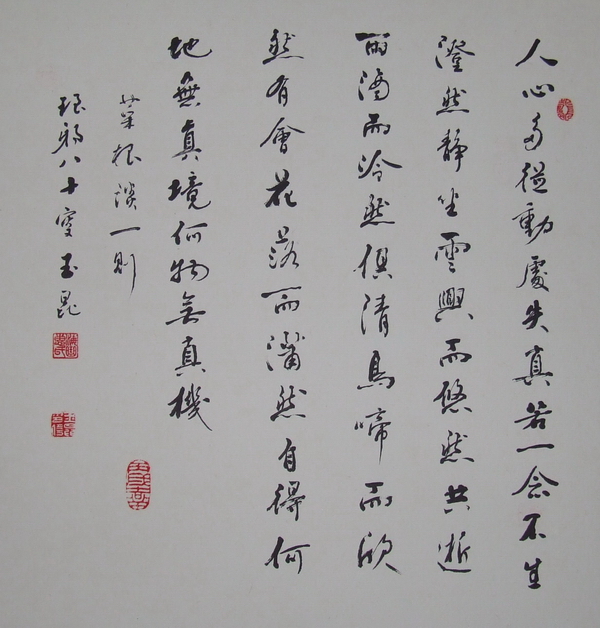 人心多從動處失真若一念不生
澄然靜坐雲興而悠然共逝
雨滴而泠然俱清鳥啼而欣
然有會花落而瀟然自得何
地無真境何物無真機
菜根談一則
琅琊八十叟玉昆